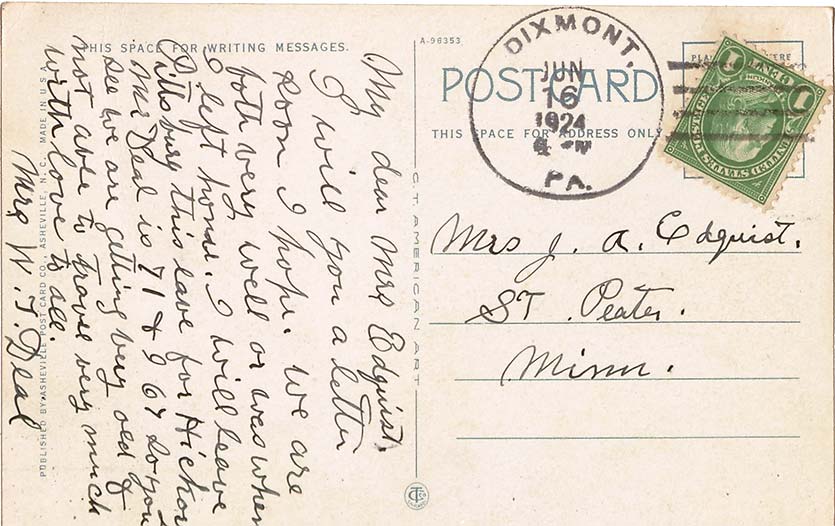 THIS SPACE FOR WRITING MESSAGES.
My dear Mrs Edquist.
I will you a letter
soon I hope. We are
both very well or was when
I left home. I will leave
Pittsburg this eave for Hickor
Mr Deal is 71 & I 67 so you
see we are getting very old &
not able to travel very much
with love to all.
Mrs W. T. Deal
PUBLISHED BY ASHEVILLE POST CARD CO., ASHEVILLE, N. C. MADE IN U.S.A.
C. T. AMERICAN ART
A-96353
POST CARD
THIS SPACE FOR ADDRESS ONLY
DIXMONT,
JUN
16
1924
PA.
PLA ERE
1 CENT 1
UNITED STATES POSTAGE
Mrs J. A. Edquist.
ST. Peater.
Minn.